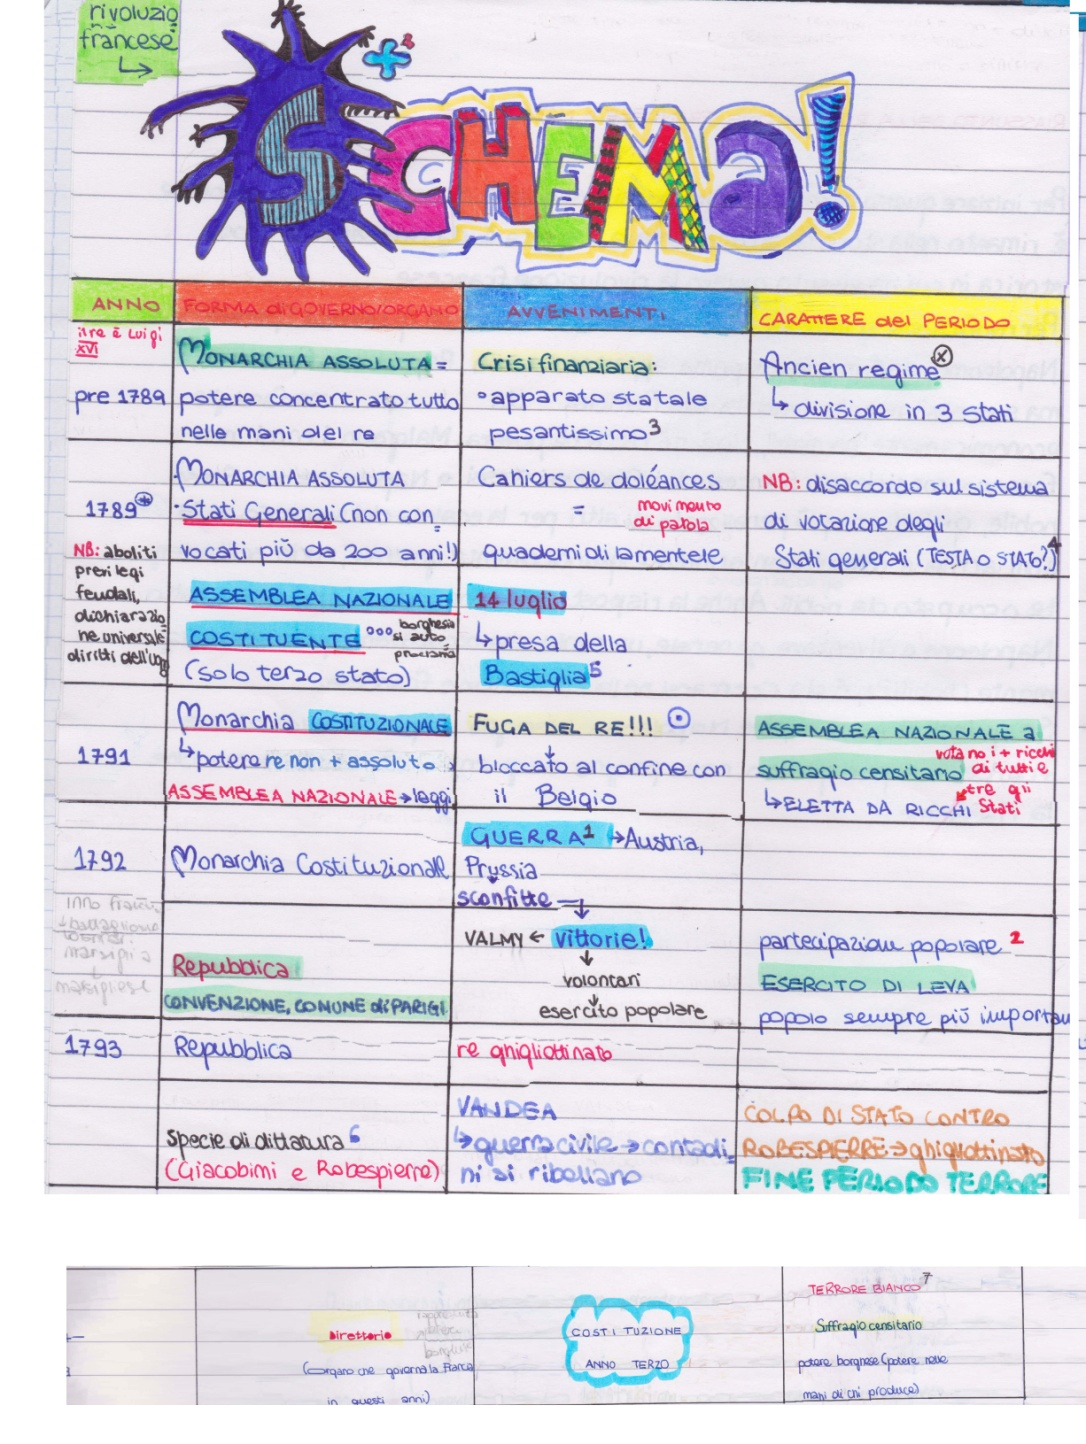 rivoluzio
francese
SCHEMA!
ANNO
FORMA di GOVERNO/ORGANO
AVVENIMENTI
CARATTERE del PERIODO
il re è Luigi
XVI
pre 1789
MONARCHIA ASSOLUTA =
potere concentrato tutto
nelle mani del re
Crisi finanziaria:
°apparato statale
pesantissimo 3
Ancien regime x
↳ divisione in 3 stati
1789 *
NB: aboliti
previlegi
feudali,
dichiarazio
ne universale
diritti dell'uo
MONARCHIA ASSOLUTA
·Stati Generali (non con=
vocati più da 200 anni!)
Cahiers de doléances
=
quaderni di lamentele
movimento
di parola
NB: disaccordo sul sistema
di votazione degli
Stati generali (TESTA O STATO?) 4
ASSEMBLEA NAZIONALE
COSTITUENTE °°°
borghesia
si auto
proclama
(solo terzo stato)
14 luglio
↳ presa della
Bastiglia 5
1791
Monarchia COSTITUZIONALE
↳ potere re non + assoluto
ASSEMBLEA NAZIONALE → leggi
FUGA DEL RE!!!
↓
bloccato al confine con
il Belgio
ASSEMBLEA NAZIONALE a
suffragio censitario
votano i + ricchi
di tutti e
tre gli
Stati
↳ ELETTA DA RICCHI
1792
Monarchia Costituzionale
GUERRA 1 → Austria,
Prussia
sconfitte
VALMY ← vittorie!
↓
volontari
↓
esercito popolare
inno
battaglione
marsiglia
↓
marsigliese
Repubblica
CONVENZIONE, COMUNE di PARIGI
partecipazion popolare 2
ESERCITO DI LEVA
popolo sempre più importan
1793
Repubblica
re ghigliottinato
Specie di dittatura 6
(Giacobimi e Robespierre)
VANDEA
↳ guerra civile → contadi=
ni si ribellano
COLPO DI STATO CONTRO
ROBESPIERRE → ghigliottinato
FINE PERIODO TERRORE
Direttorio
(organo che governa la Francia
in questi anni)
COSTITUZIONE
ANNO TERZO
TERRORE BIANCO 7
Suffragio censitario
potere borghese (potere nelle
mani di chi produce)